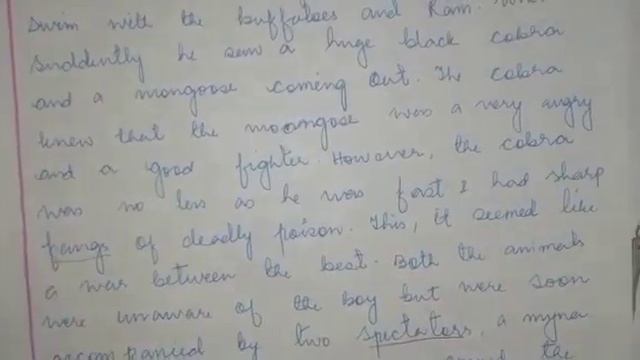 swim with the buffaloes and Ram.
Suddently he sew a huge black cobra
and a mongoose coming out. The cobra
knew that the moongose was a very angry
and a good fighter. However, the cobra
was no less as he was fast & had sharp
fangs of deadly poison. This, it seemed like
a war between the best. Both the animals
were unaware of the boy but were soon
accompanied by two spectators, a myna
the